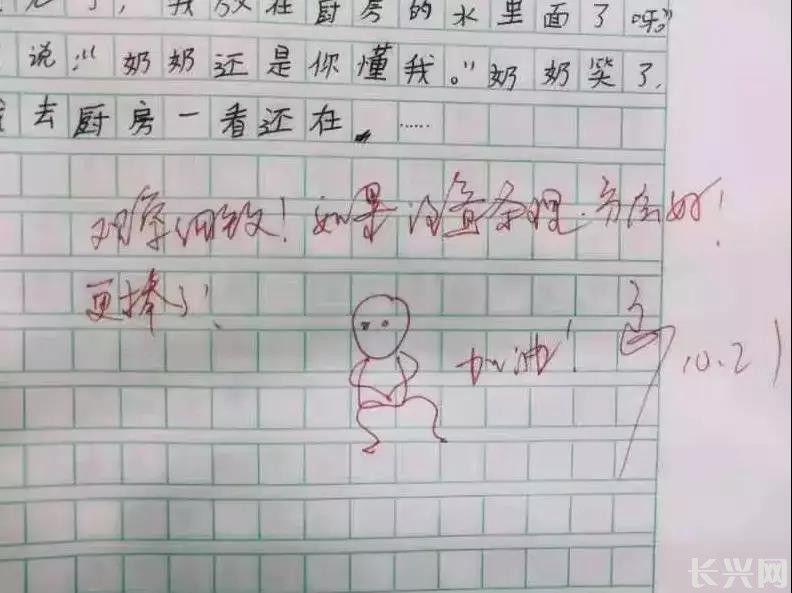 了，我放在厨房的水里面了呀。”
说：“奶奶还是你懂我。”奶奶笑了。
去厨房一看还在。……
观察细致！如果注意条理，方法好！
更棒了！
加油！
10.21
长兴网